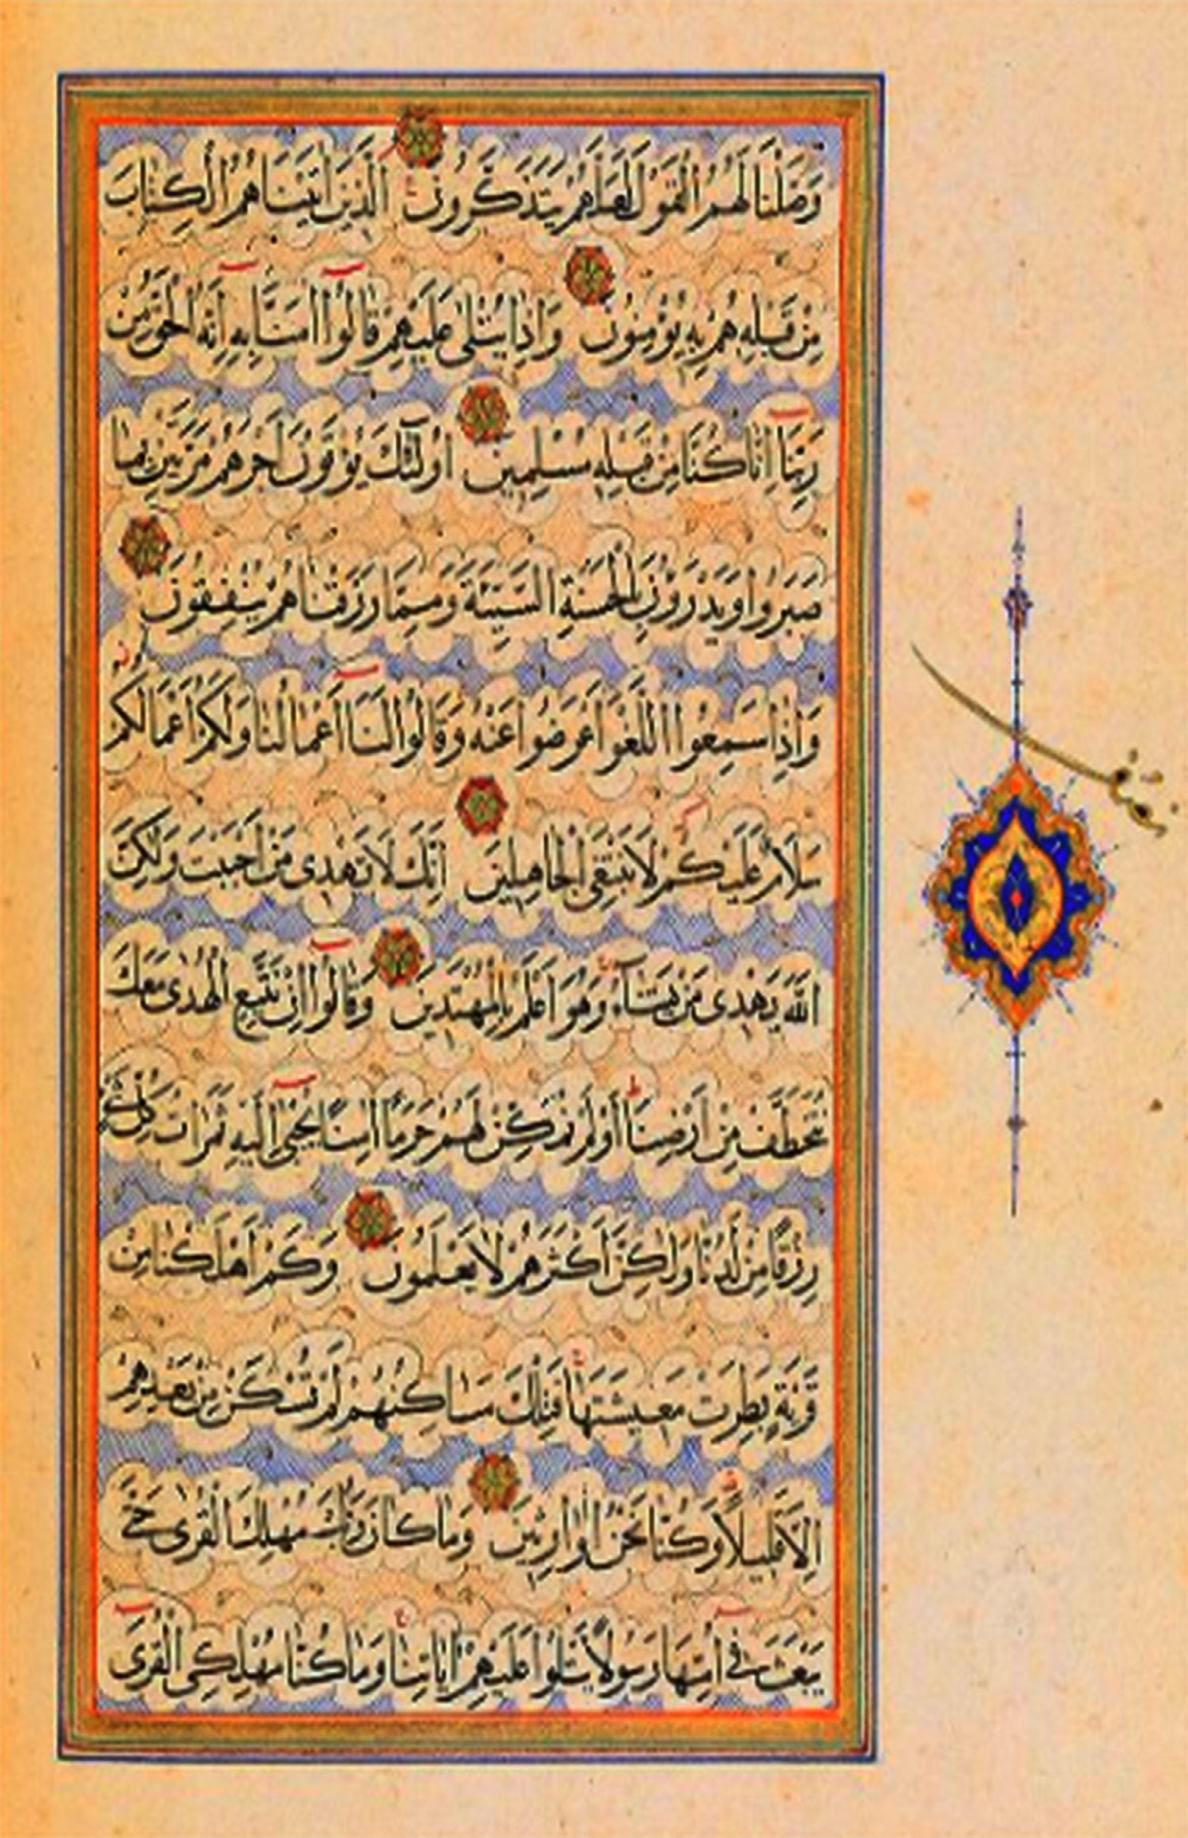 وَصَّلْنَا لَهُمُ الْقَوْلَ لَعَلَّهُمْ يَتَذَكَّرُونَ الَّذِينَ اٰتَيْنَاهُمُ الْكِتَابَ
مِنْ قَبْلِهِ هُمْ بِهِ يُؤْمِنُونَ وَاِذَا يُتْلٰى عَلَيْهِمْ قَالُوا اٰمَنَّا بِهِ اِنَّهُ الْحَقُّ مِنْ
رَبِّنَا اِنَّا كُنَّا مِنْ قَبْلِهِ مُسْلِمِينَ اُولٰئِكَ يُؤْتَوْنَ اَجْرَهُمْ مَرَّتَيْنِ بِمَا
صَبَرُوا وَيَدْرَؤُنَ بِالْحَسَنَةِ السَّيِّئَةَ وَمِمَّا رَزَقْنَاهُمْ يُنْفِقُونَ
وَاِذَا سَمِعُوا اللَّغْوَ اَعْرَضُوا عَنْهُ وَقَالُوا لَنَا اَعْمَالُنَا وَلَكُمْ اَعْمَالُكُمْ
سَلَامٌ عَلَيْكُمْ لَا نَبْتَغِي الْجَاهِلِينَ اِنَّكَ لَا تَهْدِى مَنْ اَحْبَبْتَ وَلٰكِنَّ
اللّٰهَ يَهْدِى مَنْ يَشَآءُ وَهُوَ اَعْلَمُ بِالْمُهْتَدِينَ وَقَالُوا اِنْ نَتَّبِعِ الْهُدٰى مَعَكَ
نُتَخَطَّفْ مِنْ اَرْضِنَا اَوَلَمْ نُمَكِّنْ لَهُمْ حَرَمًا اٰمِنًا يُجْبٰى اِلَيْهِ ثَمَرَاتُ كُلِّ شَىْءٍ
رِزْقًا مِنْ لَدُنَّا وَلٰكِنَّ اَكْثَرَهُمْ لَا يَعْلَمُونَ وَكَمْ اَهْلَكْنَا مِنْ
قَرْيَةٍ بَطِرَتْ مَعِيشَتَهَا فَتِلْكَ مَسَاكِنُهُمْ لَمْ تُسْكَنْ مِنْ بَعْدِهِمْ
اِلَّا قَلِيلًا وَكُنَّا نَحْنُ الْوَارِثِينَ وَمَا كَانَ رَبُّكَ مُهْلِكَ الْقُرٰى حَتّٰى
يَبْعَثَ فِى اُمِّهَا رَسُولًا يَتْلُوا عَلَيْهِمْ اٰيَاتِنَا وَمَا كُنَّا مُهْلِكِى الْقُرٰى